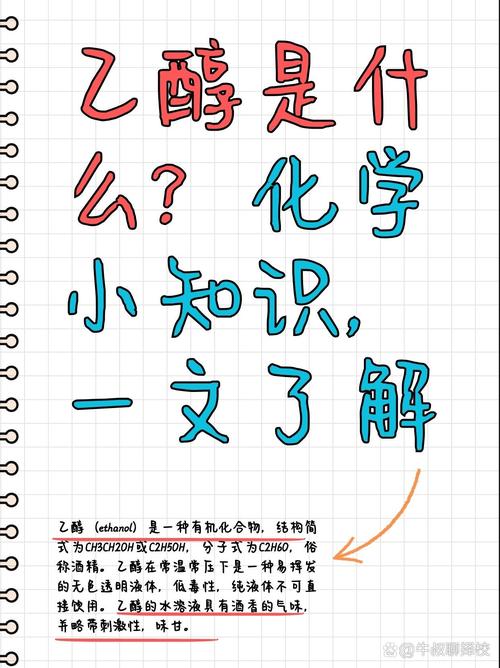 乙醇是什
么？化学
小知识，
一文了解
乙醇（ethanol）是一种有机化合物，结构简
式为CH3CH2OH或C2H5OH，分子式为C2H6O，俗
称酒精。乙醇在常温常压下是一种易挥发
的无色透明液体，低毒性，纯液体不可直
接饮用。乙醇的水溶液具有酒香的气味，
并略带刺激性，味甘。
牛叔聊择校